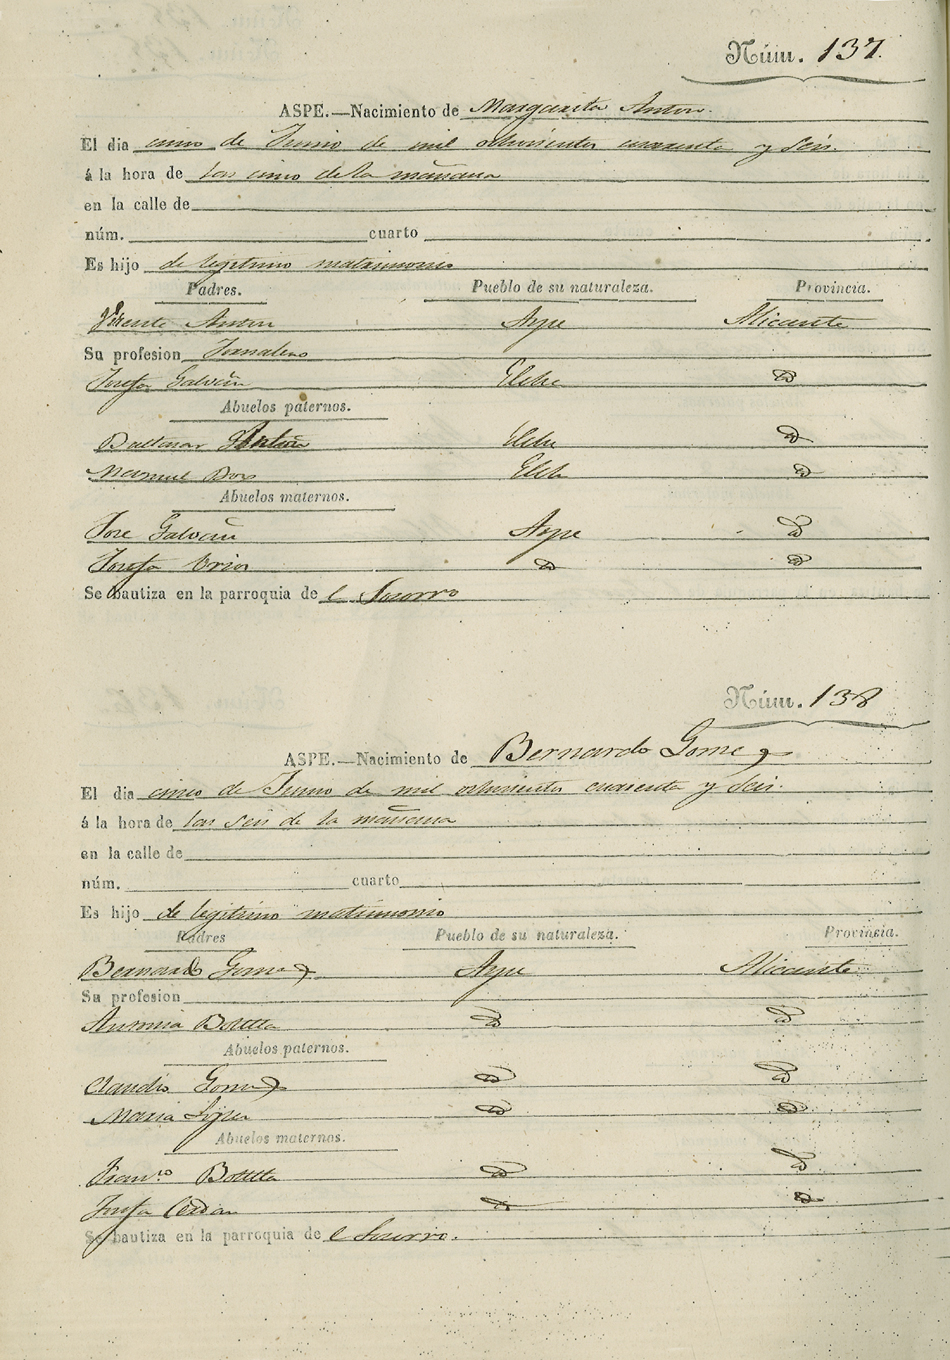 Núm. 137.
ASPE.—Nacimiento de Margarita Anton.
El dia cinco de Junio de mil ochocientos cuarenta y seis.
á la hora de las cinco de la mañana
en la calle de
núm. cuarto
Es hijo de legitimo matrimonio
Padres. Pueblo de su naturaleza. Provincia.
Vicente Anton Aspe Alicante
Su profesion Jornalero
Josefa Galvañ Elche Id
Abuelos paternos.
Baltasar Antón Elche Id
Manuel Elche Id
Abuelos maternos.
Jose Galvañ Aspe Id
Josefa Id Id
Se bautiza en la parroquia de l Socorro
Núm. 138
ASPE.—Nacimiento de Bernardo Gomez
El dia cinco de Junio de mil ochocientos cuarenta y seis.
á la hora de las seis de la mañana
en la calle de
núm. cuarto
Es hijo de legitimo matrimonio
Padres Pueblo de su naturaleza. Provincia.
Bernardo Gomez Aspe Alicante
Su profesion
Antonia Botella Id Id
Abuelos paternos.
Claudio Gomez Id Id
Maria Lopez Id Id
Abuelos maternos.
Franco Botella Id Id
Josefa Cerdan Id Id
Se bautiza en la parroquia de l Socorro.